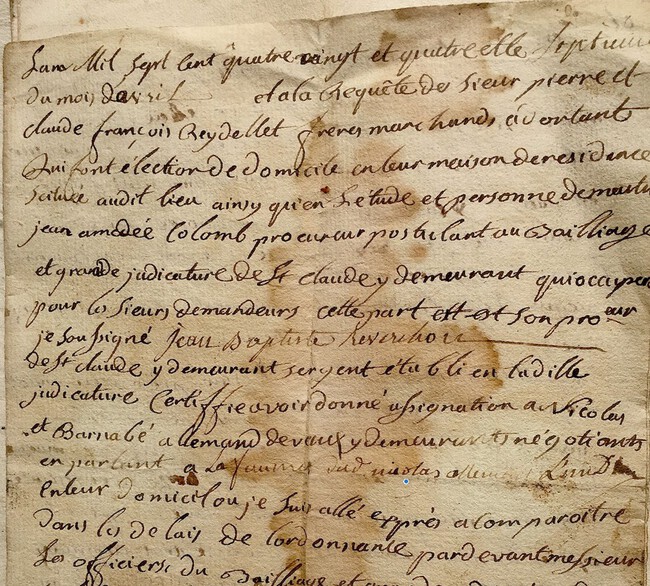 L'an Mil sept Cent quatre vingt et quatre et le septieme
du mois d'avril et a la Requête des sieur pierre et
claude françois Reydellet freres marchands à vortant
qui font élection de domicile en leur maison de residence
scituée audit lieu ainsy qu'en L'etude et personne de maitre
jean amedée Colomb procureur postulant au Bailliage
et grande judicature de St Claude y demeurant qui occupera
pour les sieurs demandeurs cette part est et son proeur
je soussigné Jean Baptiste Reverchon
de St claude y demeurant sergent établi en ladille
judicature Certiffie avoir donné assignation a Nicolas
et Barnabé allemand devaux y demeurants négotiants
en parlant a La dud nicolas allemand
en leur Domicil ou je suis allé exprès a Comparoitre
dans les delais de lordonnance pardevant messieurs
Les officiers du Bailliage et